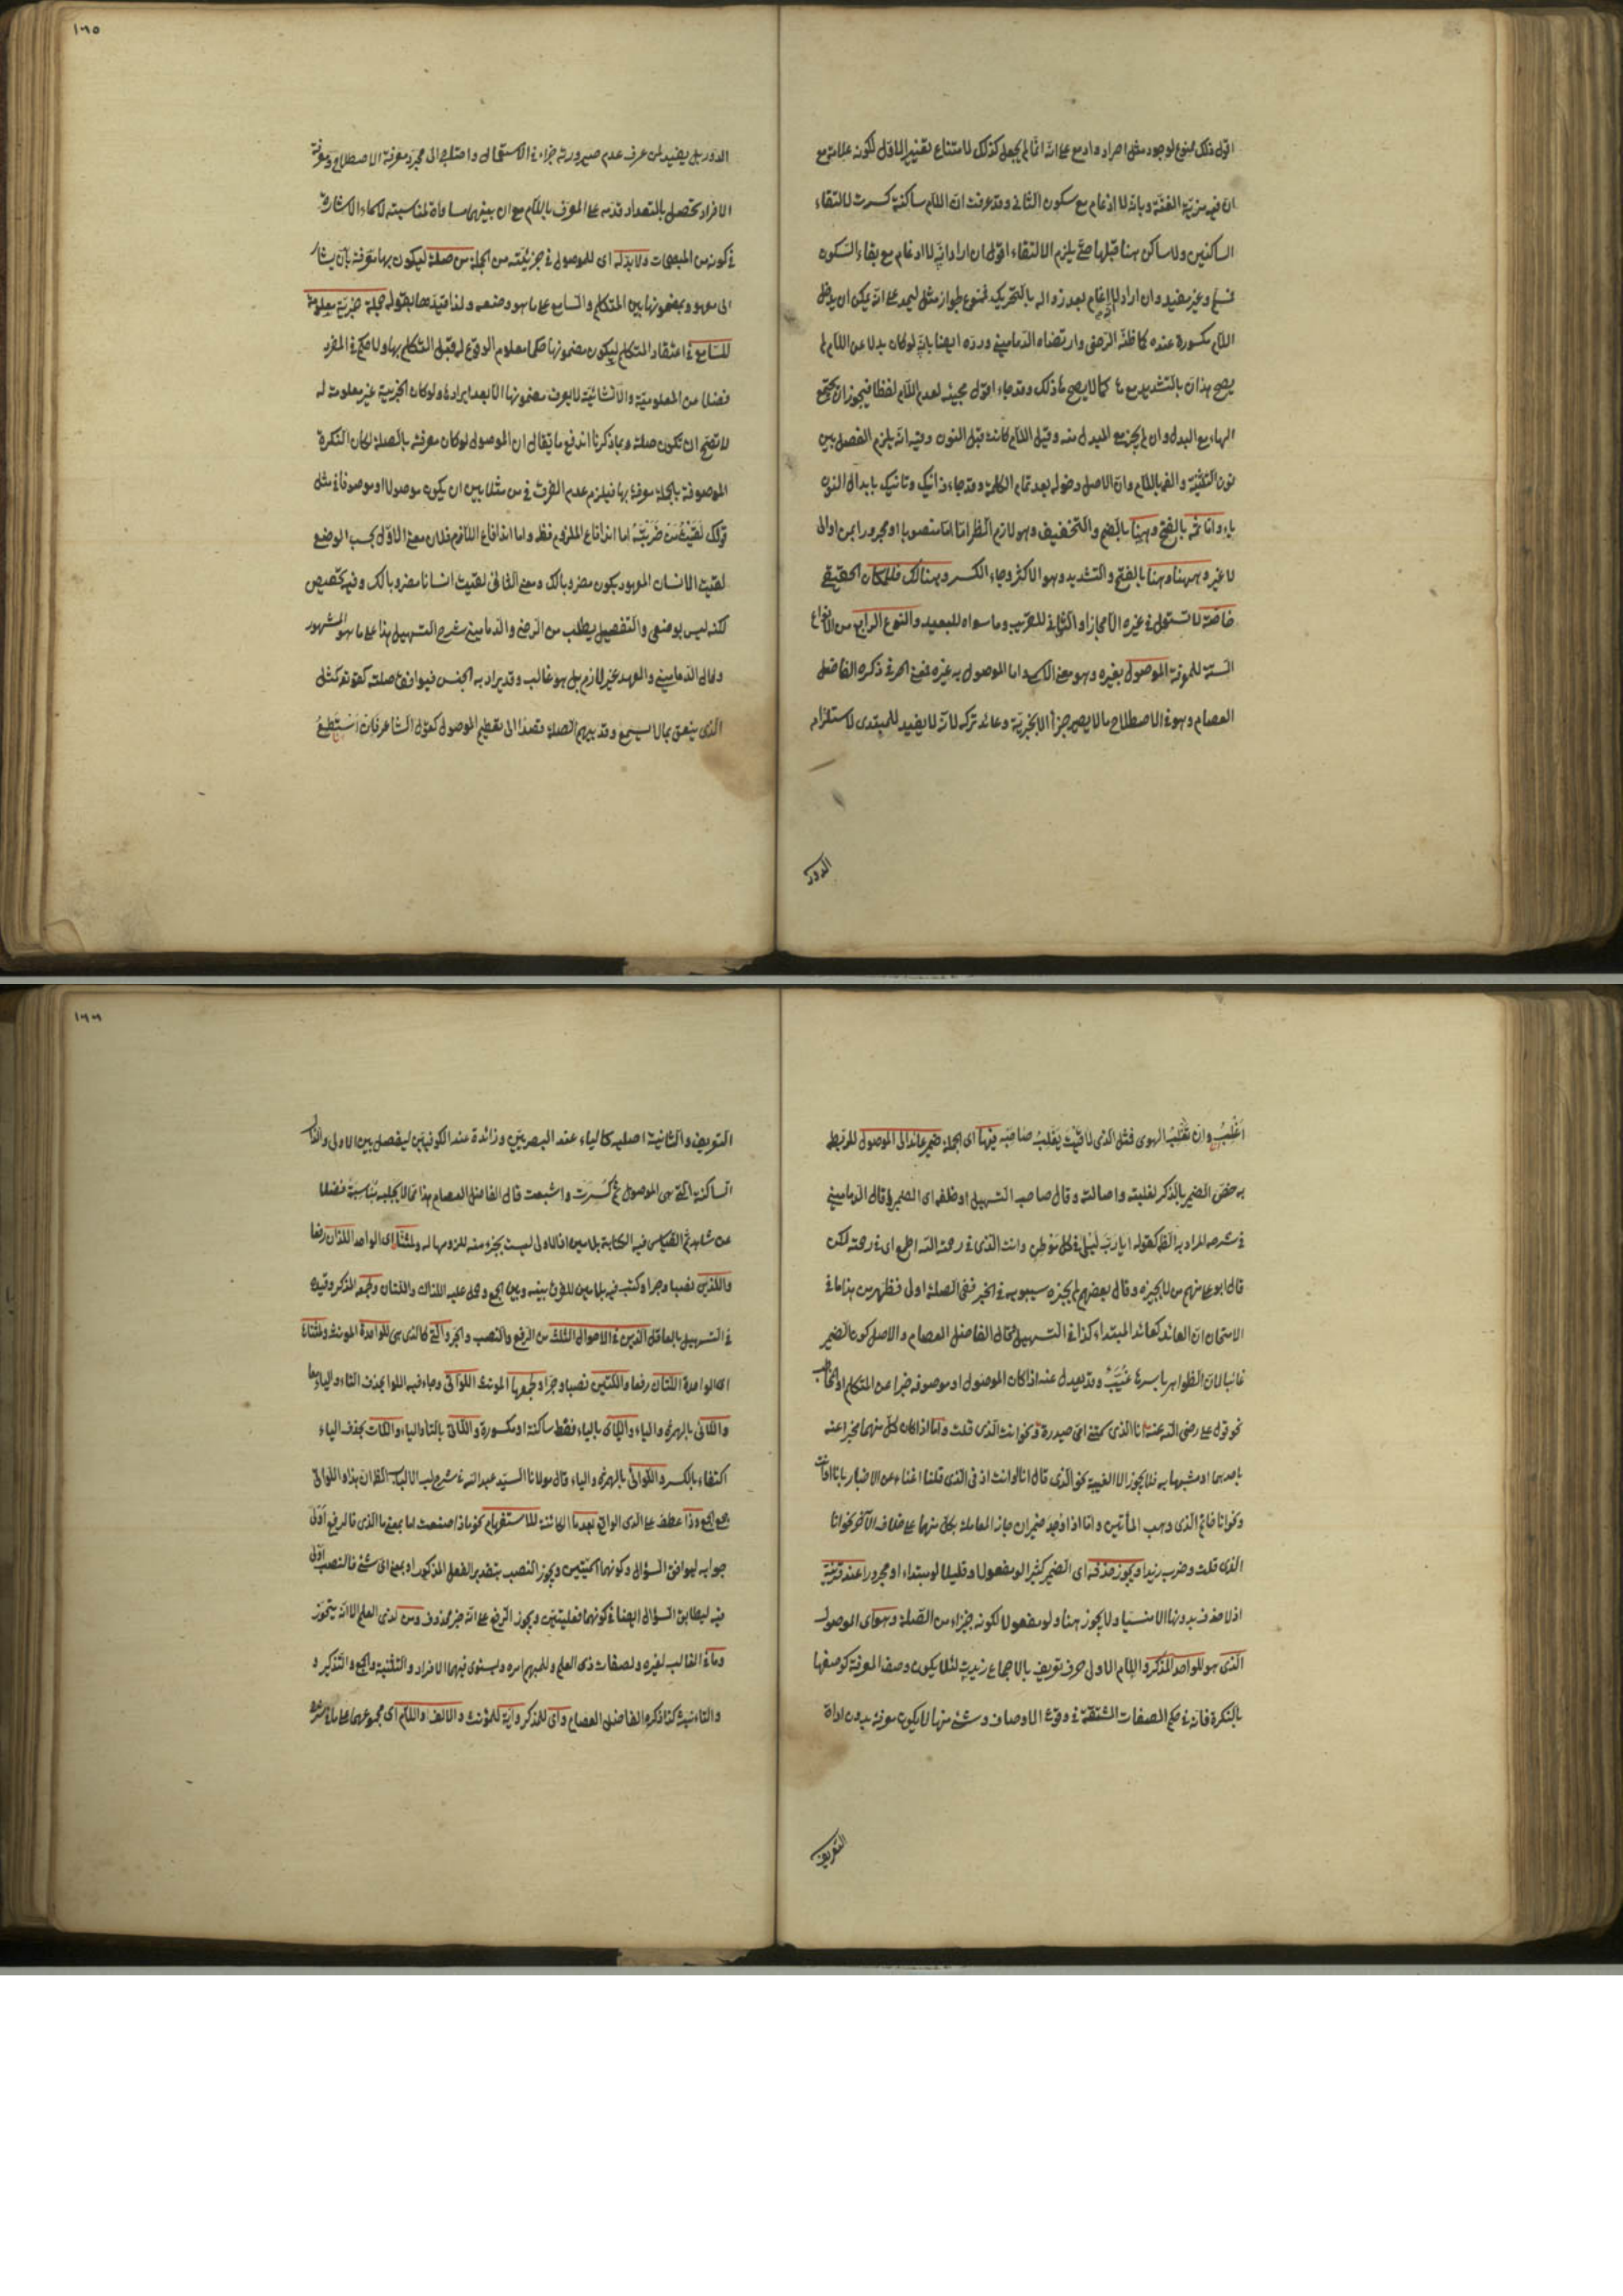 اقول ذلك ممنوع لوجود مثل احراد وادمع على انه انما لم يجعل كذلك لامتناع تغيير الاول لكونه علامة مع
ان فيه مزية الغنة وبانه لا ادغام مع سكون الثاني وقد عرفت ان اللام ساكنة كسرت لالتقاء
الساكنين ولا ساكن هنا قبلها حتى يلزم الالتقاء اقول ان اراد انه لا ادغام مع بقاء السكون
فمسلم وغير مفيد وان اراد لا ادغام بعد زواله بالتحريك فممنوع لجواز مثل ليمد على انه يمكن ان يدخل
اللام مكسورة عنده كما ظنه الرضى وارتضاه الدمامينى ورده ايضا بانه لو كان بدلا عن اللام لم
يصح هذان بالتشديد مع ها كما لا يصح هاذلك وقد جاء اقول مجيئه لعدم اللام لفظا فيجوز ان يجتمع
الهاء مع البدل وان لم يجز مع المبدل منه وقيل اللام كانت قبل النون وفيه انه يلزم الفصل بين
نون التثنية والفها باللام وان الاصل دخوله بعد تمام الكلمة وقد جاء ذانيك وتانيك بابدال النون
ياء واما ثم بالفتح وهنا بالضم والتخفيف وهو لازم الظرف اما منصوبا او مجرورا بمن او الى
لا غير وههنا وهنا بالفتح والتشديد وهو الاكثر وجاء الكسر وهنالك فللمكان الحقيقى
خاصة لا تستعمل في غيره الا مجازا والثانى للقريب وما سواه للبعيد والنوع الرابع من الانواع
الستة للمعرفة الموصول بغيره وهو معنى الاسم واما الموصول به غيره فمعنى الحرف ذكره الفاضل
العصام وهو في الاصطلاح ما لا يصير جزأ الا بخبرية وعائد تركه لانه لا يفيد للمبتدى لاستلزام
الدور
١٦٥
الدور بل يفيد لمن عرف عدم صيرورته جزاء في الاستعمال واحتاج الى مجرد معرفة الاصطلاح ومعرفة
الافراد تحصل بالتعداد قدمه على المعرف باللام مع ان بينهما مساواة لمناسبته لاسماء الاشارة
في كونه من المبهمات ولا بد له اى للموصول في جزئيته من الجملة من صلة ليكون بها معرفة بان يشار
الى معهود بمضمونها بين المتكلم والسامع على ما هو وضعه ولذا قيدها بقوله جملة خبرية معلومة
للسامع في اعتقاد المتكلم ليكون مضمونها حكما معلوم الوقوع له قبل التكلم بها ولا حكم في المفرد
فضلا عن المعلومية والانشائية لا يعرف مضمونها الا بعد ايرادها ولو كان الخبرية غير معلومة له
لا تصح ان تكون صلة وبما ذكرنا اندفع ما يقال ان الموصول لو كان معرفة بالصلة لكان النكرة
الموصوفة بالجملة معرفة بها فيلزم عدم الفرق في من مثلا بين ان يكون موصولا او موصوفا في مثل
قولك لقيت من ضربته اما اندفاع الملزوم فظ واما اندفاع اللازم فلان معنى الاول بحسب الوضع
لقيت الانسان المعهود بكون مضروبا لك ومعنى الثانى لقيت انسانا مضروبا لك وفيه تخصيص
لكنه ليس بوضعى والتفصيل يطلب من الرضى والدمامينى شرح التسهيل هذا على ما هو المشهور
وقال الدمامينى والعهد غير لازم بل هو غالب وقد يراد به الجنس فيوافق صلته كقوله كمثل
الذى ينعق بما لا يسمع وقد يبهم الصلة قصدا الى تعظيم الموصول كقول الشاعر فان استطع
اغلب وان تغلب الهوى فمثل الذى لاقيت يغلب صاحبه فيها اى الجملة ضمير عائد الى الموصول للربط
به خص الضمير بالذكر لغلبته واصالته وقال صاحب التسهيل او خلفه اى الضمير قال الدمامينى
في شرحه المراد به الظ كقوله ايا رب ليلى في كل موطن وانت الذى في رحمة الله اطمع اى في رحمته لكن
قال ابو على منهم من لا يجيزه وقال بعضهم لم يجيزه سيبويه في الخبر ففى الصلة اولى فظهر من هذا ما في
الامتحان ان العائد كعائد المبتداء كذا في التسهيل قال الفاضل العصام والاصل كون الضمير
غائبا لان الظواهر باسرها غيب وقد يعدل عنه اذا كان الموصول او موصوفه خبرا عن المتكلم او المخاطب
نحو قول على رضى الله عنه انا الذى سمتنى امى حيدرة ونحو انت الذى قلت واما اذا كان كل منهما مخبرا عنه
باحدهما او مشبها به فلا يجوز الا الغيبة نحو الذى قال انا او انت اذ في الذى قلنا اغناء عن الاخبار بانا او انت
ونحو انا حاتم الذى وهب المأتين واما اذا وجد ضميران جاز المعاملة بكل منهما على خلاف الآخر نحو انا
الذى قلت وضرب زيدا ويجوز حذفه اى الضمير كثيرا لو مفعولا وقليلا لو مبتداء او مجرورا عند قرينة
اذ لا حذف بدونها الا منسيا ولا يجوز هنا ولو مفعولا لكونه جزاء من الصلة وهو اى الموصول
الذى هو للواحد المذكر واللام الاول حرف تعريف بالاجماع زيدت لئلا يكون وصف المعرفة كوصفها
بالنكرة فانه في حكم الصفات المشتقة في وقوع الاوصاف وشئ منها لا يكون معرفة بدون اداة
التعريف
١٦٦
التعريف والثانية اصلية كالياء عند البصريين وزائدة عند الكوفيين ليفصل بين الاولى والذال
الساكنة التى هى الموصول ثم كسرت واشبعت قال الفاضل العصام هذا مما لا يجلبه مناسبة فضلا
عن شاهد ثم القياس فيه الكتابة بلامين اذ الاولى ليست بجزء منه للزومها له ولمثناه اى الواحد اللذان رفعا
واللذين نصبا وجرا وكتب فيه بلامين للفرق بينه وبين الجمع وحمل عليه اللذان واللتان ولجمع المذكر وقيده
في التسهيل بالعاقل الذين في الاحوال الثلث من الرفع والنصب والجر والتى كالذى هى للواحدة المونث ولمثناه
اى الواحدة اللتان رفعا واللتين نصبا وجرا ولجمعها المونث اللواتى وجاء فيه اللوا بحذف التاء والياء معا
واللائى بالهمزة والياء واللاى بالياء فقط ساكنة او مكسورة واللاتى بالتاء والياء واللات بحذف الياء
اكتفاء بالكسر واللوائى بالهمزة والياء قال مولانا السيد عبد الله في شرح لب الالباب الظ ان هذا واللواتى
جمع الجمع وذا عطف على الذى الواقع بعد ما الكائنة للاستفهام نحو ماذا صنعت اما بمعنى ما الذى فالرفع اولى
جوابه ليوافق السؤال وكونهما اسميتين ويجوز النصب بتقدير الفعل المذكور او بمعنى اى شئ فالنصب اولى
فيه ليطابق السؤال ايضا في كونهما فعليتين ويجوز الرفع على انه خبر محذوف ومن لذى العلم الا انه يتجوز
وما في الغالب لغيره ولصفات ذى العلم وللمبهم امره ويستوى فيهما الافراد والتثنية والجمع والتذكير و
والتاءنيث كذا ذكره الفاضل العصام واى للمذكر واية للمؤنث والالف واللام اى مجموعهما على ما